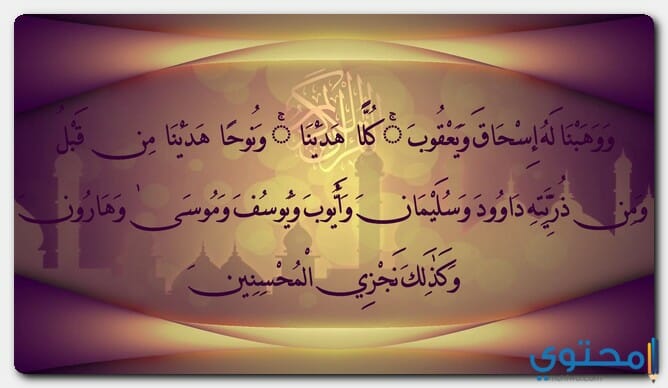 وَوَهَبْنَا لَهُ إِسْحَاقَ وَيَعْقُوبَ ۚ كُلًّا هَدَيْنَا ۚ وَنُوحًا هَدَيْنَا مِن قَبْلُ
وَمِن ذُرِّيَّتِهِ دَاوُودَ وَسُلَيْمَانَ وَأَيُّوبَ وَيُوسُفَ وَمُوسَىٰ وَهَارُونَ
وَكَذَٰلِكَ نَجْزِي الْمُحْسِنِينَ
محتوي